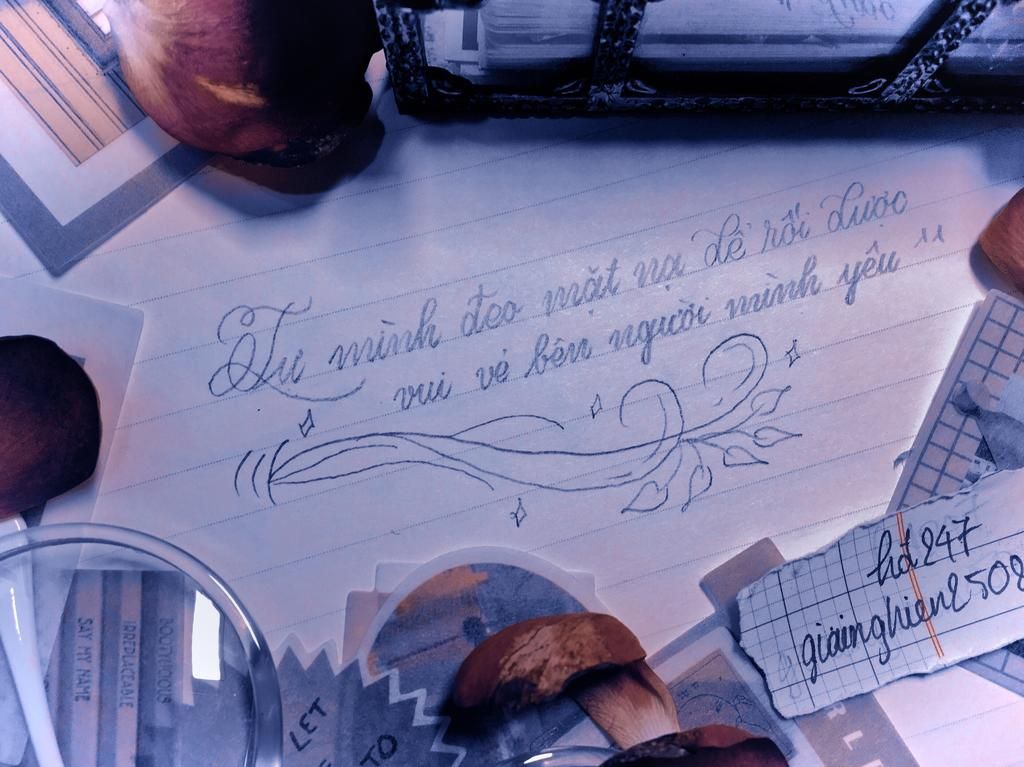 Tự mình đeo mặt nạ để rồi được
vui vẻ bên người mình yêu "
hđ247
giainghien2508
BOUNTEOUS
IRREPLACEABLE
SAY MY NAME
LET
TO